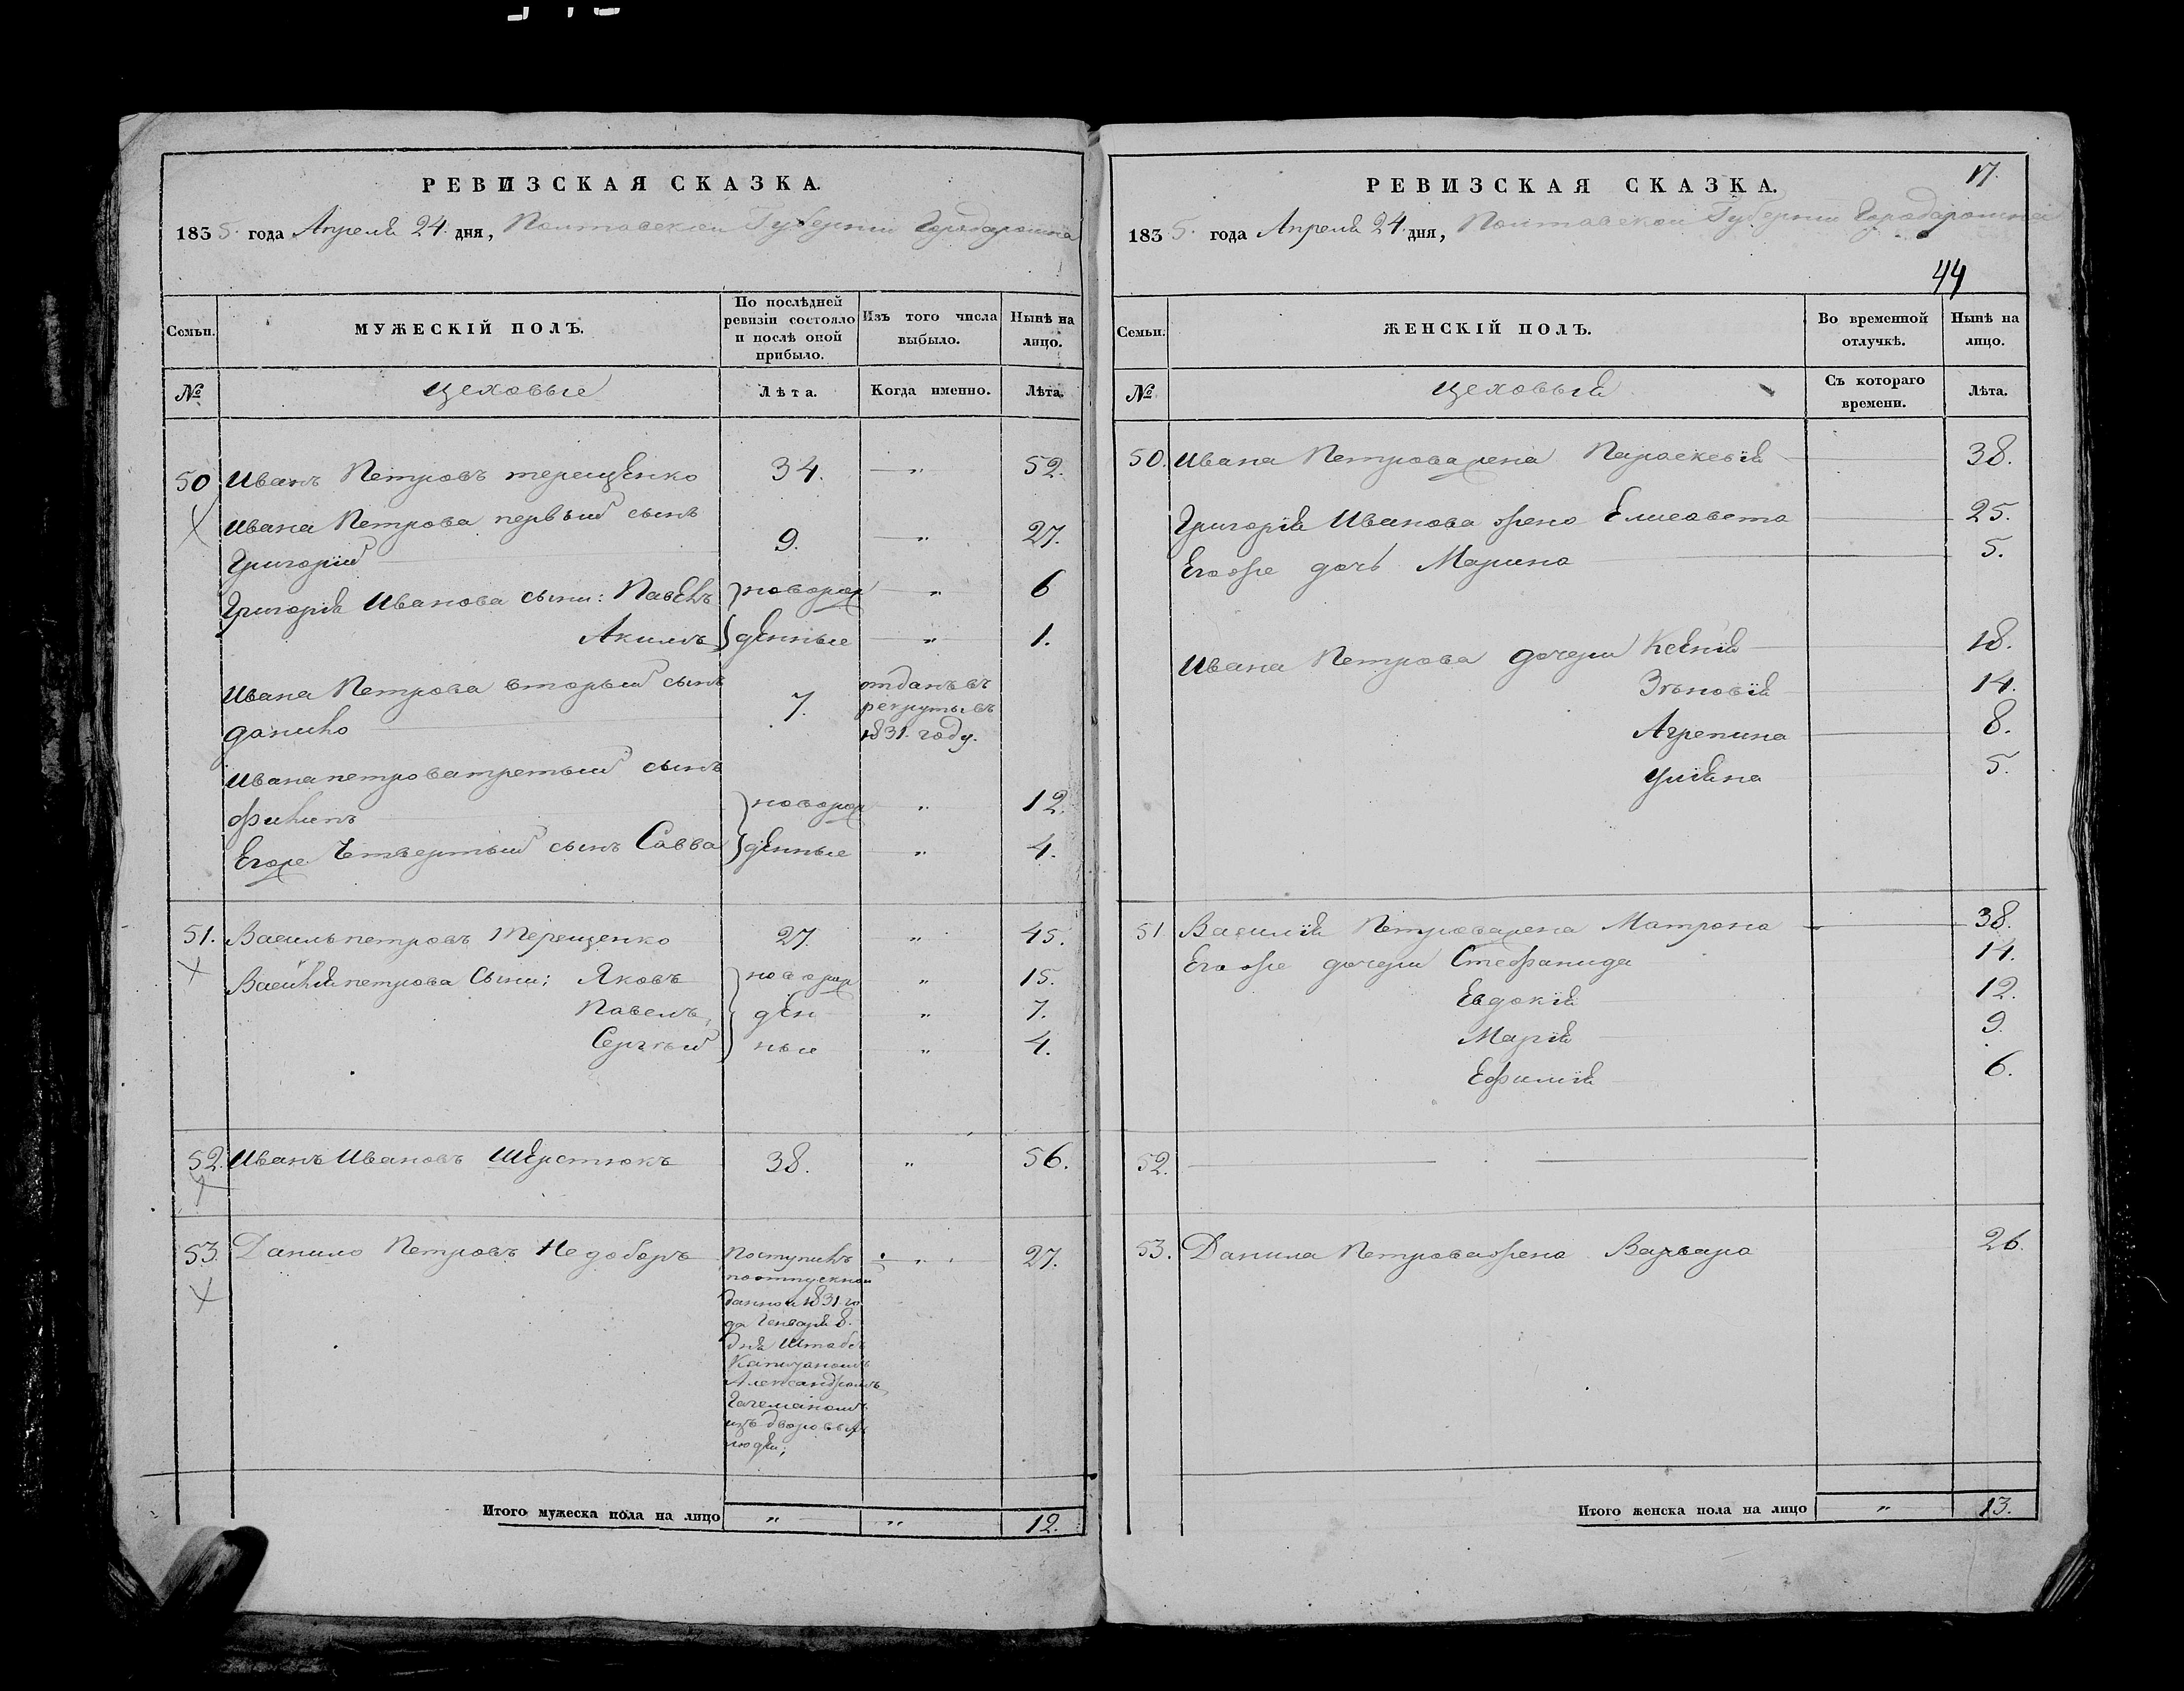 РЕВИЗСКАЯ СКАЗКА.
1835. года Апреля 24. дня, Полтавской Губернии Города
Семьи.
МУЖЕСКІЙ ПОЛЪ.
По послѣдней
ревизіи состояло
и послѣ оной
прибыло.
Изъ того числа
выбыло.
Нынѣ на
лицо.
№
цеховые
Лѣта.
Когда именно.
Лѣта.
50 Иванъ Петровъ терещенко 34. — „ — 52.
Ивана Петрова первый сынъ
Григорій 9. — „ — 27.
Григорія Иванова сыны: Павелъ } новорож — „ — 6
Акимъ } денные — „ — 1.
Ивана Петрова вторый сынъ
данило 7. отданъ въ
рекруты въ
1831. году.
Ивана петрова третьий сынъ
филипъ } новорож „ 12.
Егоже Четвертый сынъ Савва } денные „ 4.
51. Василь петровъ Терещенко 27 „ 45.
Василія петрова Сыны: Яковъ } новорож „ 15.
Павелъ, } ден „ 7.
Сергѣй } ные „ 4.
52. Иванъ Ивановъ Шерстюкъ 38. „ 56.
53. Данило Петровъ Недоборъ Поступилъ — „ 27.
по отпускной
данной 1831. го
да Генваря 8.
дня Штабсъ
Капитаномъ
Александромъ
изъ дворовыхъ
людей;
Итого мужеска пола на лицо „ „ 12.
17.
РЕВИЗСКАЯ СКАЗКА.
1835. года Апреля 24. дня, Полтавской Губернии
44
Семьи.
ЖЕНСКІЙ ПОЛЪ.
Во временной
отлучкѣ.
Нынѣ на
лицо.
№
цеховыя
Съ котораго
времени.
Лѣта.
50. Ивана Петрова жена Параскевія 38.
Григорія Иванова жена Елисавета 25.
Егоже дочь Марина 5.
Ивана Петрова дочери Ксенія 18.
Зѣновія 14.
Агрепина 8.
Уліяна 5.
51. Василія Петрова жена Матрона 38.
Егоже дочери Стефанида 14.
Евдокія 12.
Марія 9.
Ефимія 6.
52.
53. Данила Петрова жена Варвара 26.
Итого женска пола на лицо „ 13.